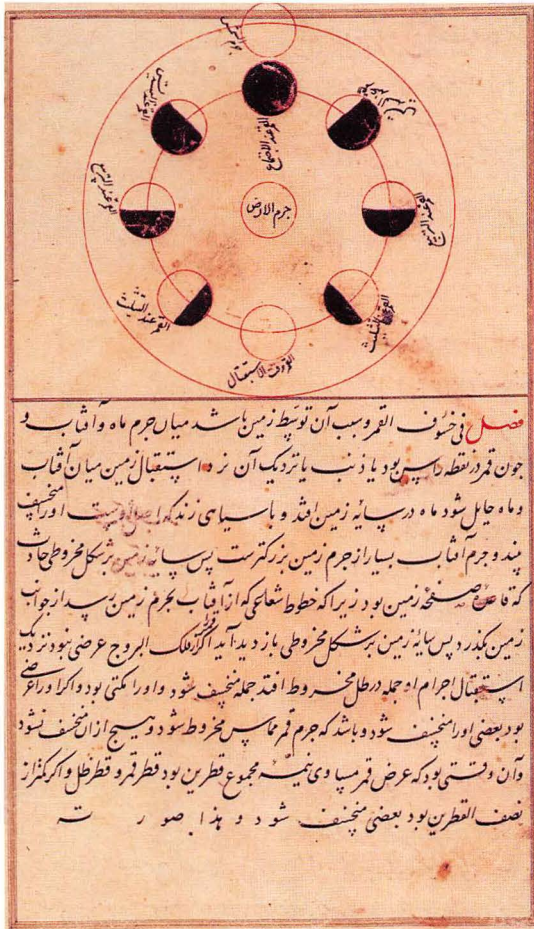 جرم الشمس
القمر عند الاجتماع
القمر عند التسدیس
القمر عند التربیع
القمر عند التربیع
جرم الارض
القمر عند التثلیث
القمر عند التثلیث
القمر وقت الاستقبال
فصل فی خسوف القمر و سبب آن توسط زمین باشد میان جرم ماه و آفتاب و
جون قمر در نقطه راس بود یا ذنب یا نزدیک آن نزد استقبال زمین میان آفتاب
و ماه حایل شود ماه در سایه زمین افتد و با سیاهی زند که اصل اوست و او را منخسف
بینند و جرم آفتاب بسیار از جرم زمین بزرکترست پس سایه زمین بر شکل مخروطی حادث
که قاعده صفحه زمین بود زیرا که خطوط شعاعی که از آفتاب بجرم زمین رسد از جوانب
زمین بکذرد پس سایه زمین بر شکل مخروطی باز دید آید اکر از فلک البروج عرضی نبود نزدیک
استقبال اجرام او جمله در ظل مخروط افتد جمله منخسف شود و او را مکثی بود و اکر او را عرضی
بود بعضی او را منخسف شود و باشد که جرم قمر مماس مخروط شود و هیچ از آن منخسف نشود
و آن وقتی بود که عرض قمر مساوی نیمه مجموع قطرین بود قطر قمر و قطر ظل و اکر کمتر از
نصف القطرین بود بعضی منخسف شود و هذا صورته